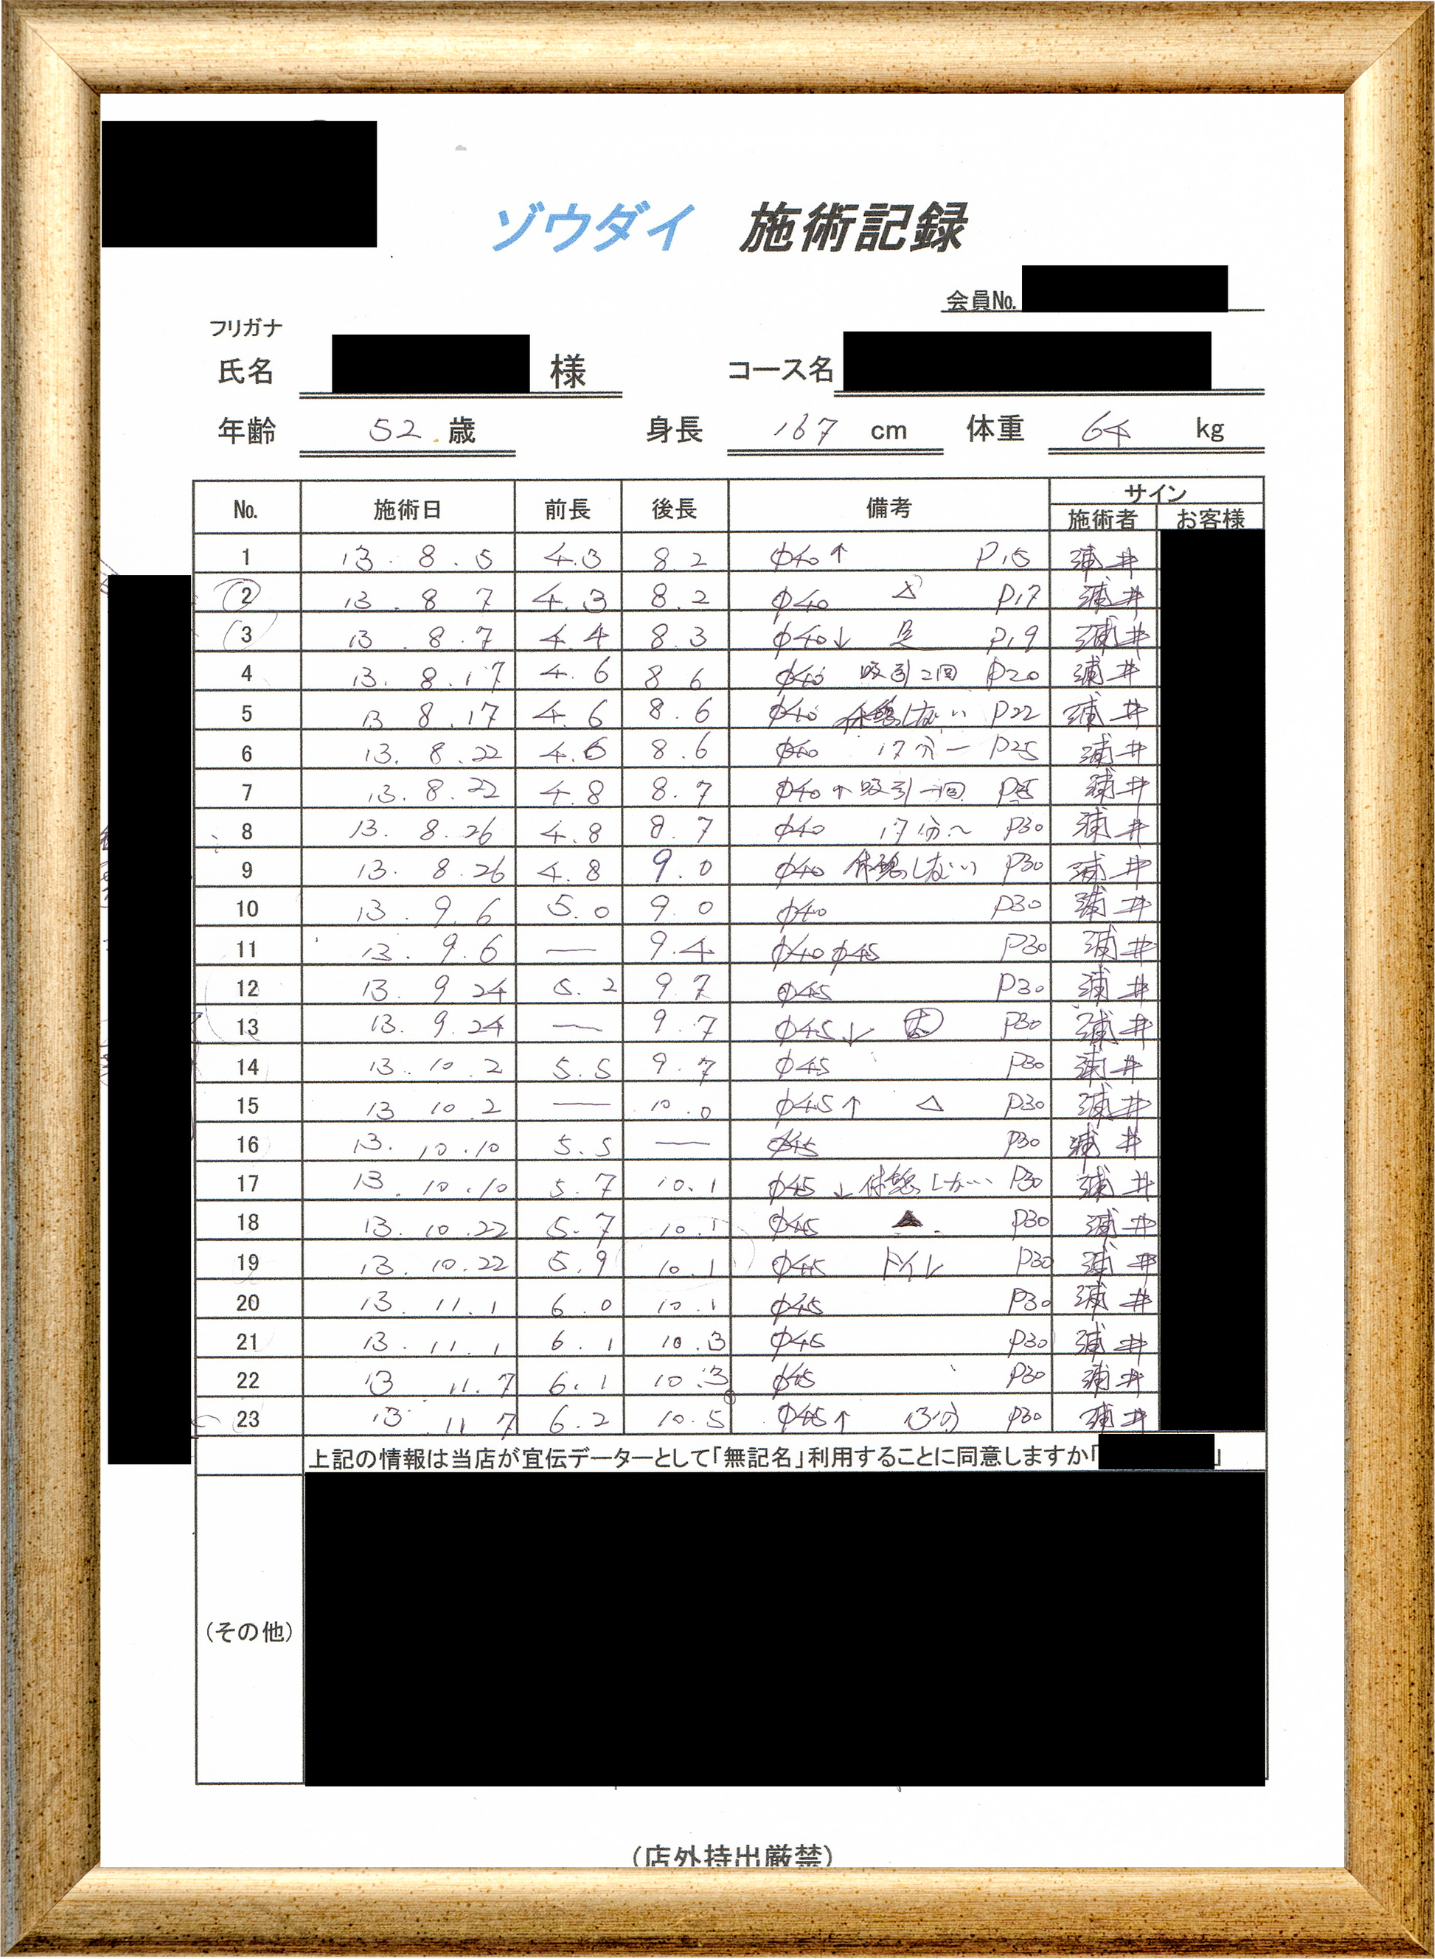 ゾウダイ 施術記録
会員No.
フリガナ
氏名 様 コース名
年齢 52 歳 身長 167 cm 体重 64 kg
No. 施術日 前長 後長 備考 サイン
施術者 お客様
1 13. 8. 5 4.3 8.2 φ40↑ P15 浦井
2 13. 8 7 4.3 8.2 φ40 P17 浦井
3 13 8.7 4.4 8.3 φ40↓ 足 P19 浦井
4 13. 8.17 4.6 8 6 φ40 吸引2回 P20 浦井
5 13 8.17 4.6 8.6 φ40 休憩しない P22 浦井
6 13. 8.22 4.6 8.6 φ40 17分ー P25 浦井
7 13. 8.22 4.8 8.7 φ40↑吸引一回 浦井
8 13. 8.26 4.8 8.7 φ40 17分〜 P30 浦井
9 13. 8.26 4.8 9.0 φ40 休憩しない P30 浦井
10 13. 9.6 5.0 9.0 φ40 P30 浦井
11 13. 9.6 ― 9.4 φ40 φ45 P30 浦井
12 13. 9 24 5.2 9.7 φ45 P30 浦井
13 13. 9.24 ― 9.7 φ45↓ P30 浦井
14 13. 10.2 5.5 9.7 φ45 P30 浦井
15 13 10.2 ― 10.0 φ45↑ △ P30 浦井
16 13. 10.10 5.5 ― φ45 P30 浦井
17 13. 10.10 5.7 10.1 φ45↓休憩しない P30 浦井
18 13. 10.22 5.7 10.1 φ45 ▲ P30 浦井
19 13. 10.22 5.9 10.1 φ45 トイレ P30 浦井
20 13. 11.1 6.0 10.1 φ45 P30 浦井
21 13. 11.1 6.1 10.3 φ45 P30 浦井
22 13 11.7 6.1 10.3 φ45 P30 浦井
23 13. 11 7 6.2 10.5 φ45↑ P30 浦井
上記の情報は当店が宣伝データーとして「無記名」利用することに同意しますか「 」
(その他)
(店外持出厳禁)